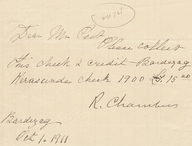 Dear Mr Peet
Please collect
this check & credit Bardezag
Kerasunda check 1900 15 00
R. Chambers
Bardezag
Oct 1. 1911